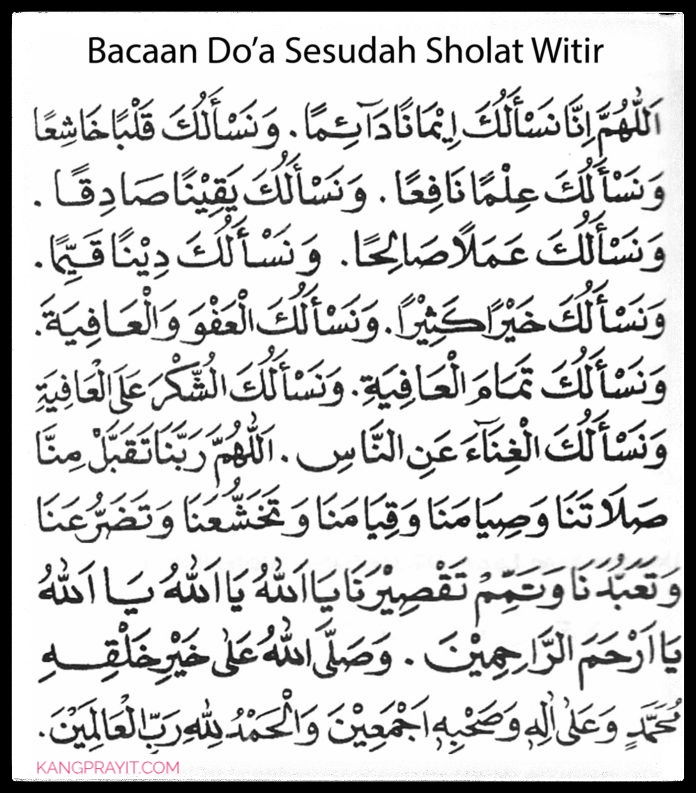 Bacaan Do’a Sesudah Sholat Witir
اَللّٰهُمَّ اِنَّا نَسْأَلُكَ اِيْمَانًا دَآئِمًا. وَنَسْأَلُكَ قَلْبًا خَاشِعًا
وَنَسْأَلُكَ عِلْمًا نَافِعًا. وَنَسْأَلُكَ يَقِيْنًا صَادِقًا.
وَنَسْأَلُكَ عَمَلًا صَالِحًا. وَنَسْأَلُكَ دِيْنًا قَيِّمًا.
وَنَسْأَلُكَ خَيْرًا كَثِيْرًا. وَنَسْأَلُكَ الْعَفْوَ وَالْعَافِيَةَ.
وَنَسْأَلُكَ تَمَامَ الْعَافِيَةِ. وَنَسْأَلُكَ الشُّكْرَ عَلَى الْعَافِيَةِ
وَنَسْأَلُكَ الْغِنَآءَ عَنِ النَّاسِ. اَللّٰهُمَّ رَبَّنَا تَقَبَّلْ مِنَّا
صَلَاتَنَا وَصِيَامَنَا وَقِيَامَنَا وَتَخَشُّعَنَا وَتَضَرُّعَنَا
وَتَعَبُّدَنَا وَتَمِّمْ تَقْصِيْرَنَا يَا اَللّٰهُ يَا اَللّٰهُ يَا اَللّٰهُ
يَا اَرْحَمَ الرَّاحِمِيْنَ. وَصَلَّى اللّٰهُ عَلٰى خَيْرِ خَلْقِهِ
مُحَمَّدٍ وَعَلٰى اٰلِهٖ وَصَحْبِهٖ اَجْمَعِيْنَ وَالْحَمْدُ لِلّٰهِ رَبِّ الْعَالَمِيْنَ.
KANGPRAYIT.COM